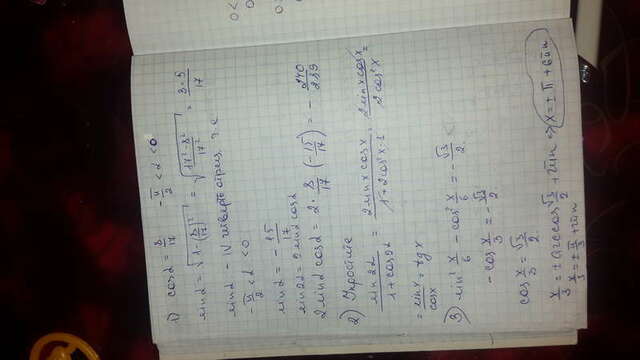 1) cos α = 8/17   -π/2 < α < 0
sin α = √(1-(8/17)²) = √((17²-8²)/17²) = (3·5)/17
sin α - IV четверть отриц. т.к
-π/2 < α < 0
sin α = -15/17
sin 2α = 2 sin α cos α
2 sin α cos α = 2 · 8/17 · (-15/17) = -240/289
2) Упростите
sin 2α/(1+cos 2α) = 2 sin x cos x/(1+2cos²x-1) = 2 sin x cos x/(2 cos² x) =
= sin x/cos x = tg x
3) sin² x/6 - cos² x/6 = -√3/2
-cos x/3 = -√3/2
cos x/3 = √3/2
x/3 = ± arccos √3/2 + 2πn